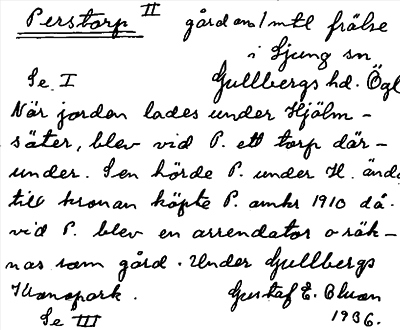 Perstorp II gård om 1 mtl frälse
i Ljung sn
Se I Gullbergs hd. Ögl
När jorden lades under Hjälm-
säter, blev vid P. ett torp där-
under. Sen hörde P. under H. ända
till kronan köpte P. omkr 1910 då.
vid P. blev en arrendator o räk-
nas som gård. Under Gullbergs
Kronopark. Gustaf E. Olson
Se III 1936.